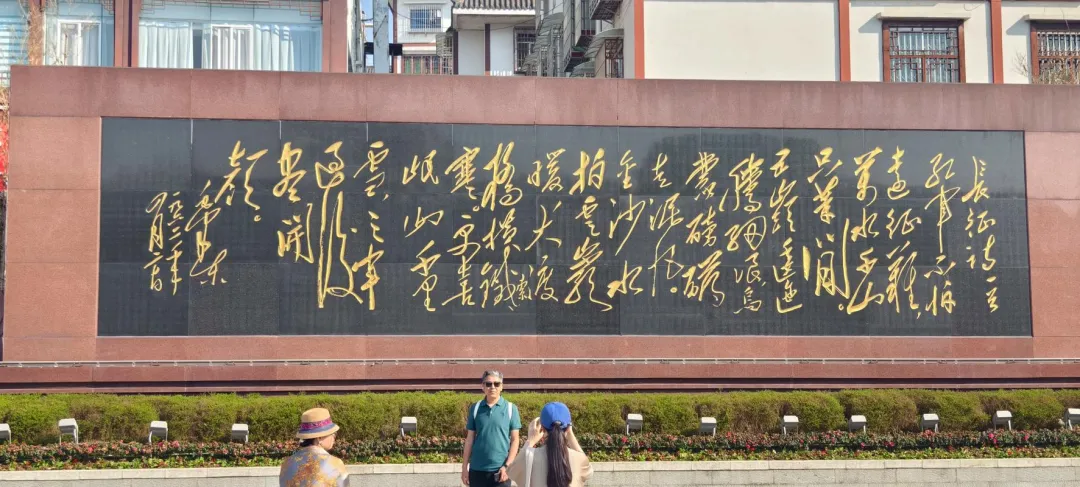 長征詩一首
紅軍不怕
遠征難,
萬水千山
只等閒。
五嶺逶迤
騰細浪,烏
蒙磅礴
走泥丸。
金沙水
拍雲崖
暖,大渡
橋橫鐵索
寒。更喜
岷山千里
雪,三軍
過後
盡開
顏。
毛澤東
一九六二年
四月廿日